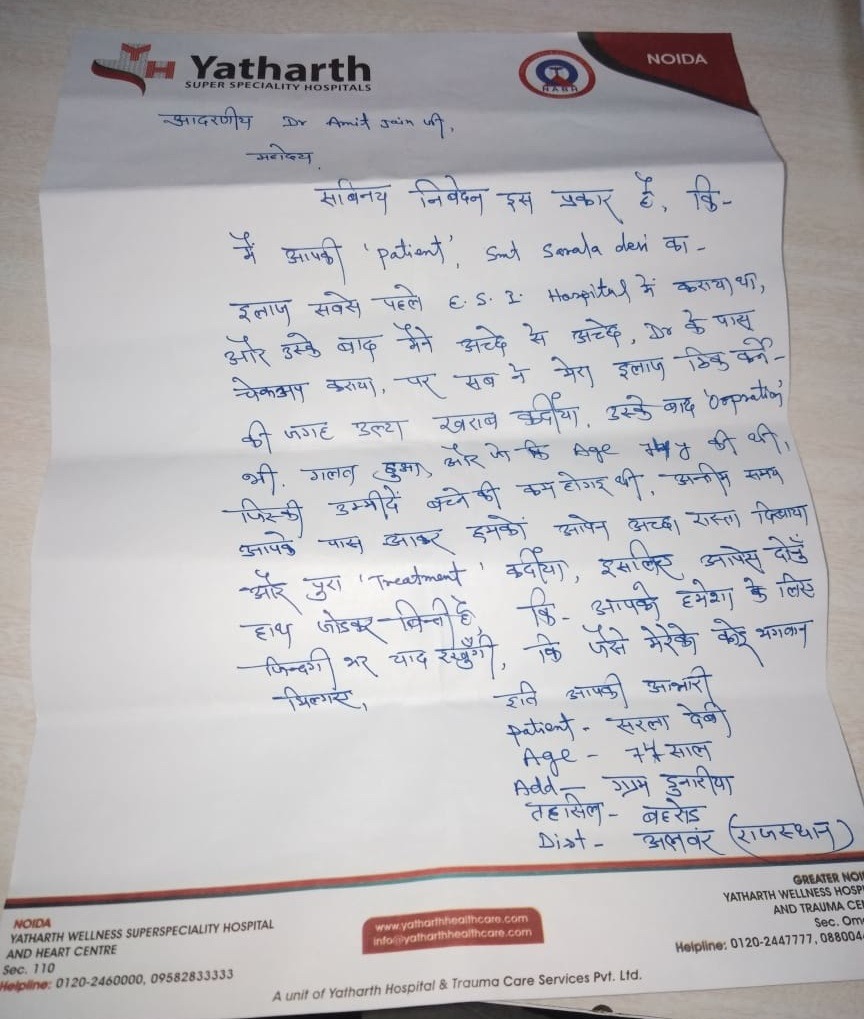 Yatharth
SUPER SPECIALITY HOSPITALS
NABH
NOIDA
आदरणीय Dr Amit Jain जी,
महोदय,
सबिनय निवेदन इस प्रकार है, कि-
मैं आपकी 'patient', Smt Sarala devi का-
इलाज सबसे पहले E.S.I. Hospital में कराया था,
और उस्के बाद मैंने अच्छे से अच्छे, Dr के पास
चेकअप कराया, पर सब ने मेरा इलाज ठिक कर्ने-
की जगह उल्टा खराब कर्दीया, उस्के बाद 'Opration'
भी. गलत हुआ, और जो कि Age की थी,
जिस्की उम्मीदें बच्ने की कम होगइ थी, अन्तीम समय
आपके पास आकर हमको आपने अच्छा रास्ता दिखाया
और पुरा 'Treatment' कर्दीया, इसलिए आपसे दोनुँ
हाथ जोडकर बिन्ती है, कि- आपको हमेशा के लिए
जिन्दगी भर याद रखुँगी, कि जैसे मेरेको कोइ भगवान
मिल्गए,
इति आपकी आभारी
patient - सरला देबी
Age - 77 साल
Add - ग्राम डुनारीया
तहसिल - बहरोड
Dist - अलवर (राजस्थान)
NOIDA
YATHARTH WELLNESS SUPERSPECIALITY HOSPITAL
AND HEART CENTRE
Sec. 110
Helpline: 0120-2460000, 09582833333
www.yatharthhealthcare.com
info@yatharthhealthcare.com
GREATER NOI
YATHARTH WELLNESS HOSPI
AND TRAUMA CE
Sec. Om
Helpline: 0120-2447777, 0880044
A unit of Yatharth Hospital & Trauma Care Services Pvt. Ltd.